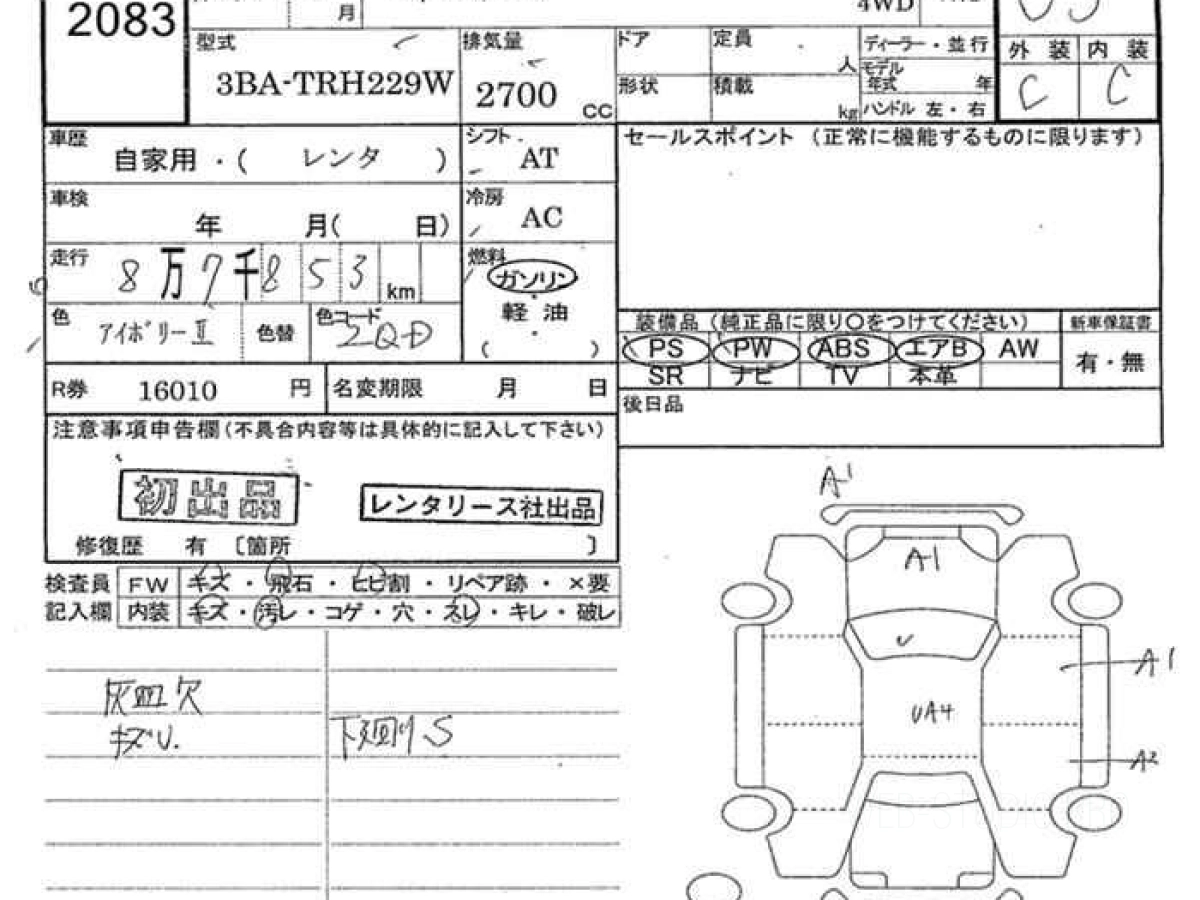 2083
月
4WD
型式
3BA-TRH229W
排気量
2700 CC
ドア
定員 人
ディーラー・並行
モデル年式 年
形状
積載 kg
ハンドル 左・右
外装 内装
C C
車歴
自家用・( レンタ )
シフト
AT
セールスポイント (正常に機能するものに限ります)
車検
年 月( 日)
冷房
AC
走行
8万7千853 km
燃料
ガソリン
軽油
( )
色
アイボリーⅡ
色替
色コード
2QD
装備品 (純正品に限り〇をつけてください)
新車保証書
PS PW ABS エアB AW
有・無
SR ナビ TV 本革
R券 16010 円
名変期限 月 日
後日品
注意事項申告欄(不具合内容等は具体的に記入して下さい)
初出品
レンタリース社出品
修復歴 有 〔箇所 〕
検査員 FW キズ・飛石・ヒビ割・リペア跡・×要
記入欄 内装 キズ・汚レ・コゲ・穴・スレ・キレ・破レ
灰皿欠
キズU.
下廻りS
A1
A1
A1
UA4
A2